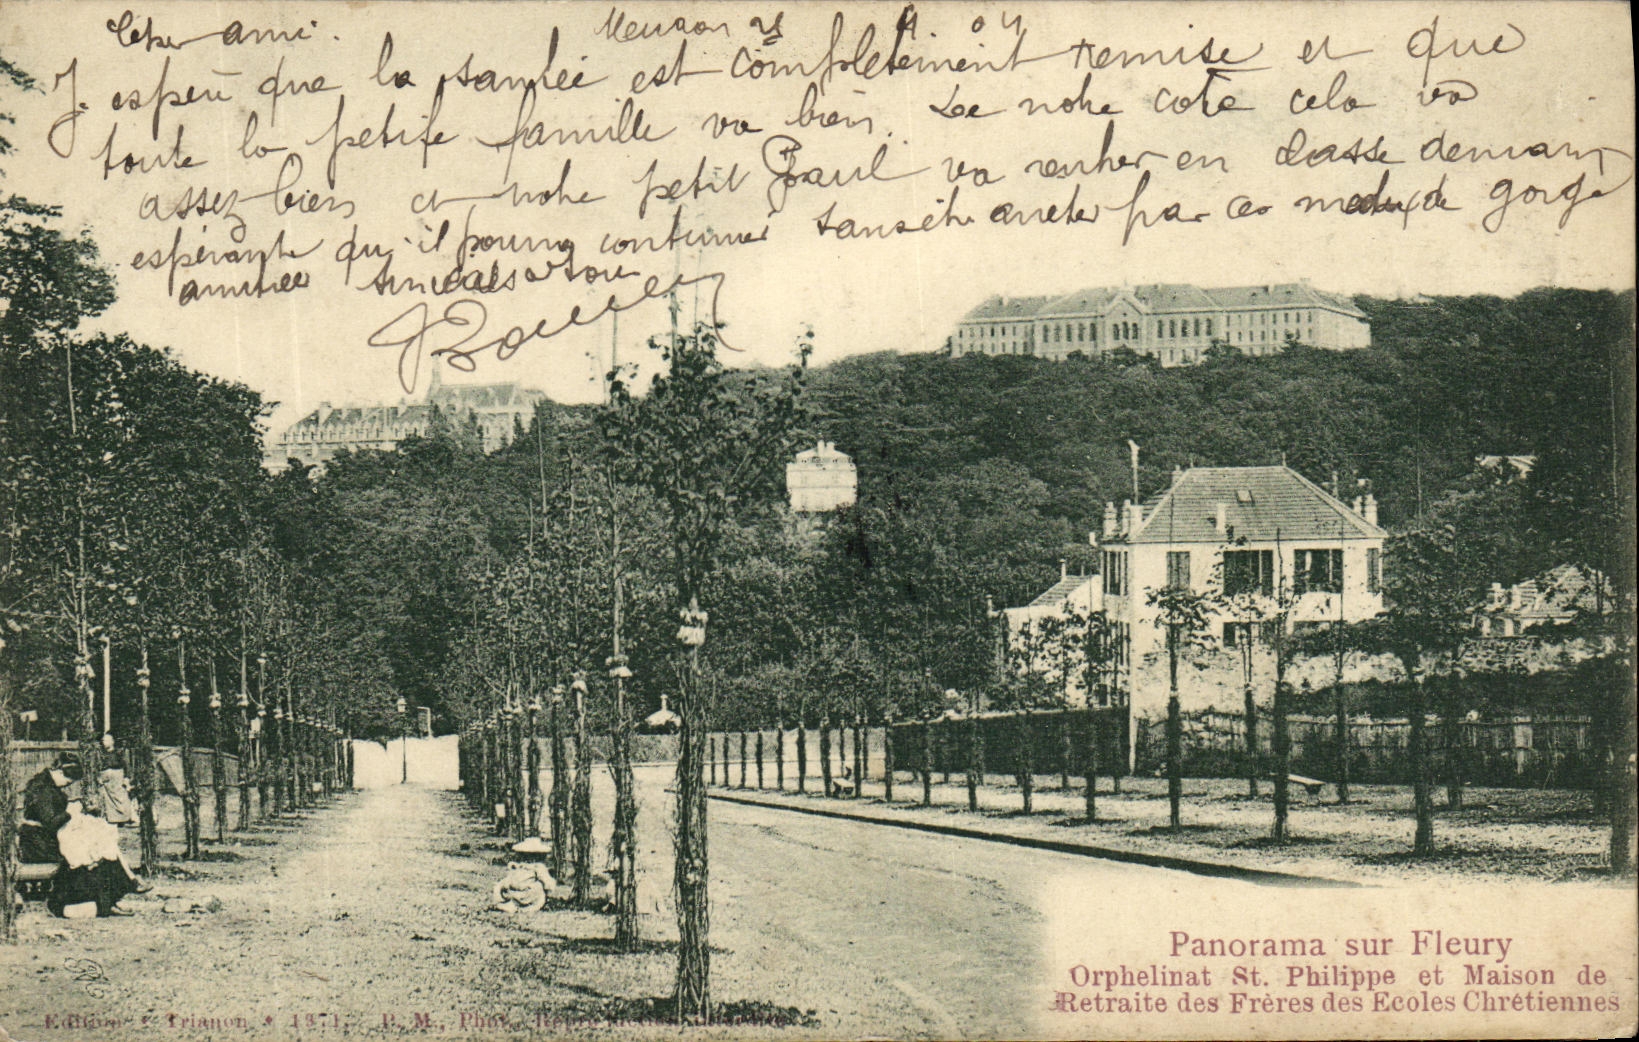 Cher ami. Meudon 25 4 04
J'espère que la santée est complètement remise et que
toute la petite famille va bien. De notre coté cela va
assez bien et notre petit Paul va rentrer en classe demain
espérant qu'il pourra continuer sans être arreter par ces maux de gorge
amitiés sincères a tous
Panorama sur Fleury
Orphelinat St. Philippe et Maison de
Retraite des Frères des Ecoles Chrétiennes
Edition * Trianon * 1371. P. M., Phot. Reproduction